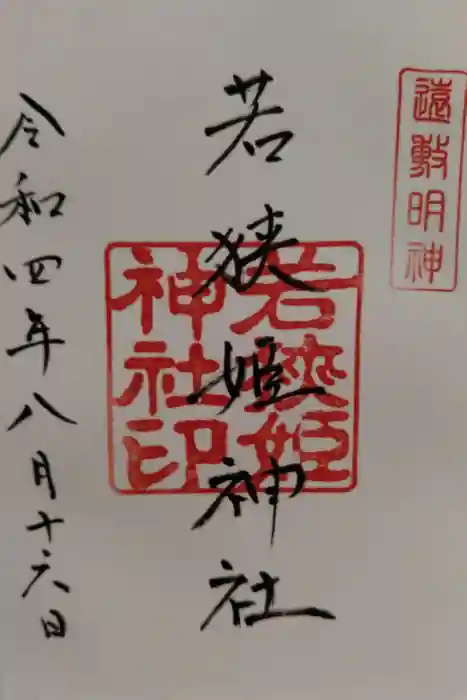 遠敷明神
若狭姫神社
若狭姫
神社印
令和四年八月十六日